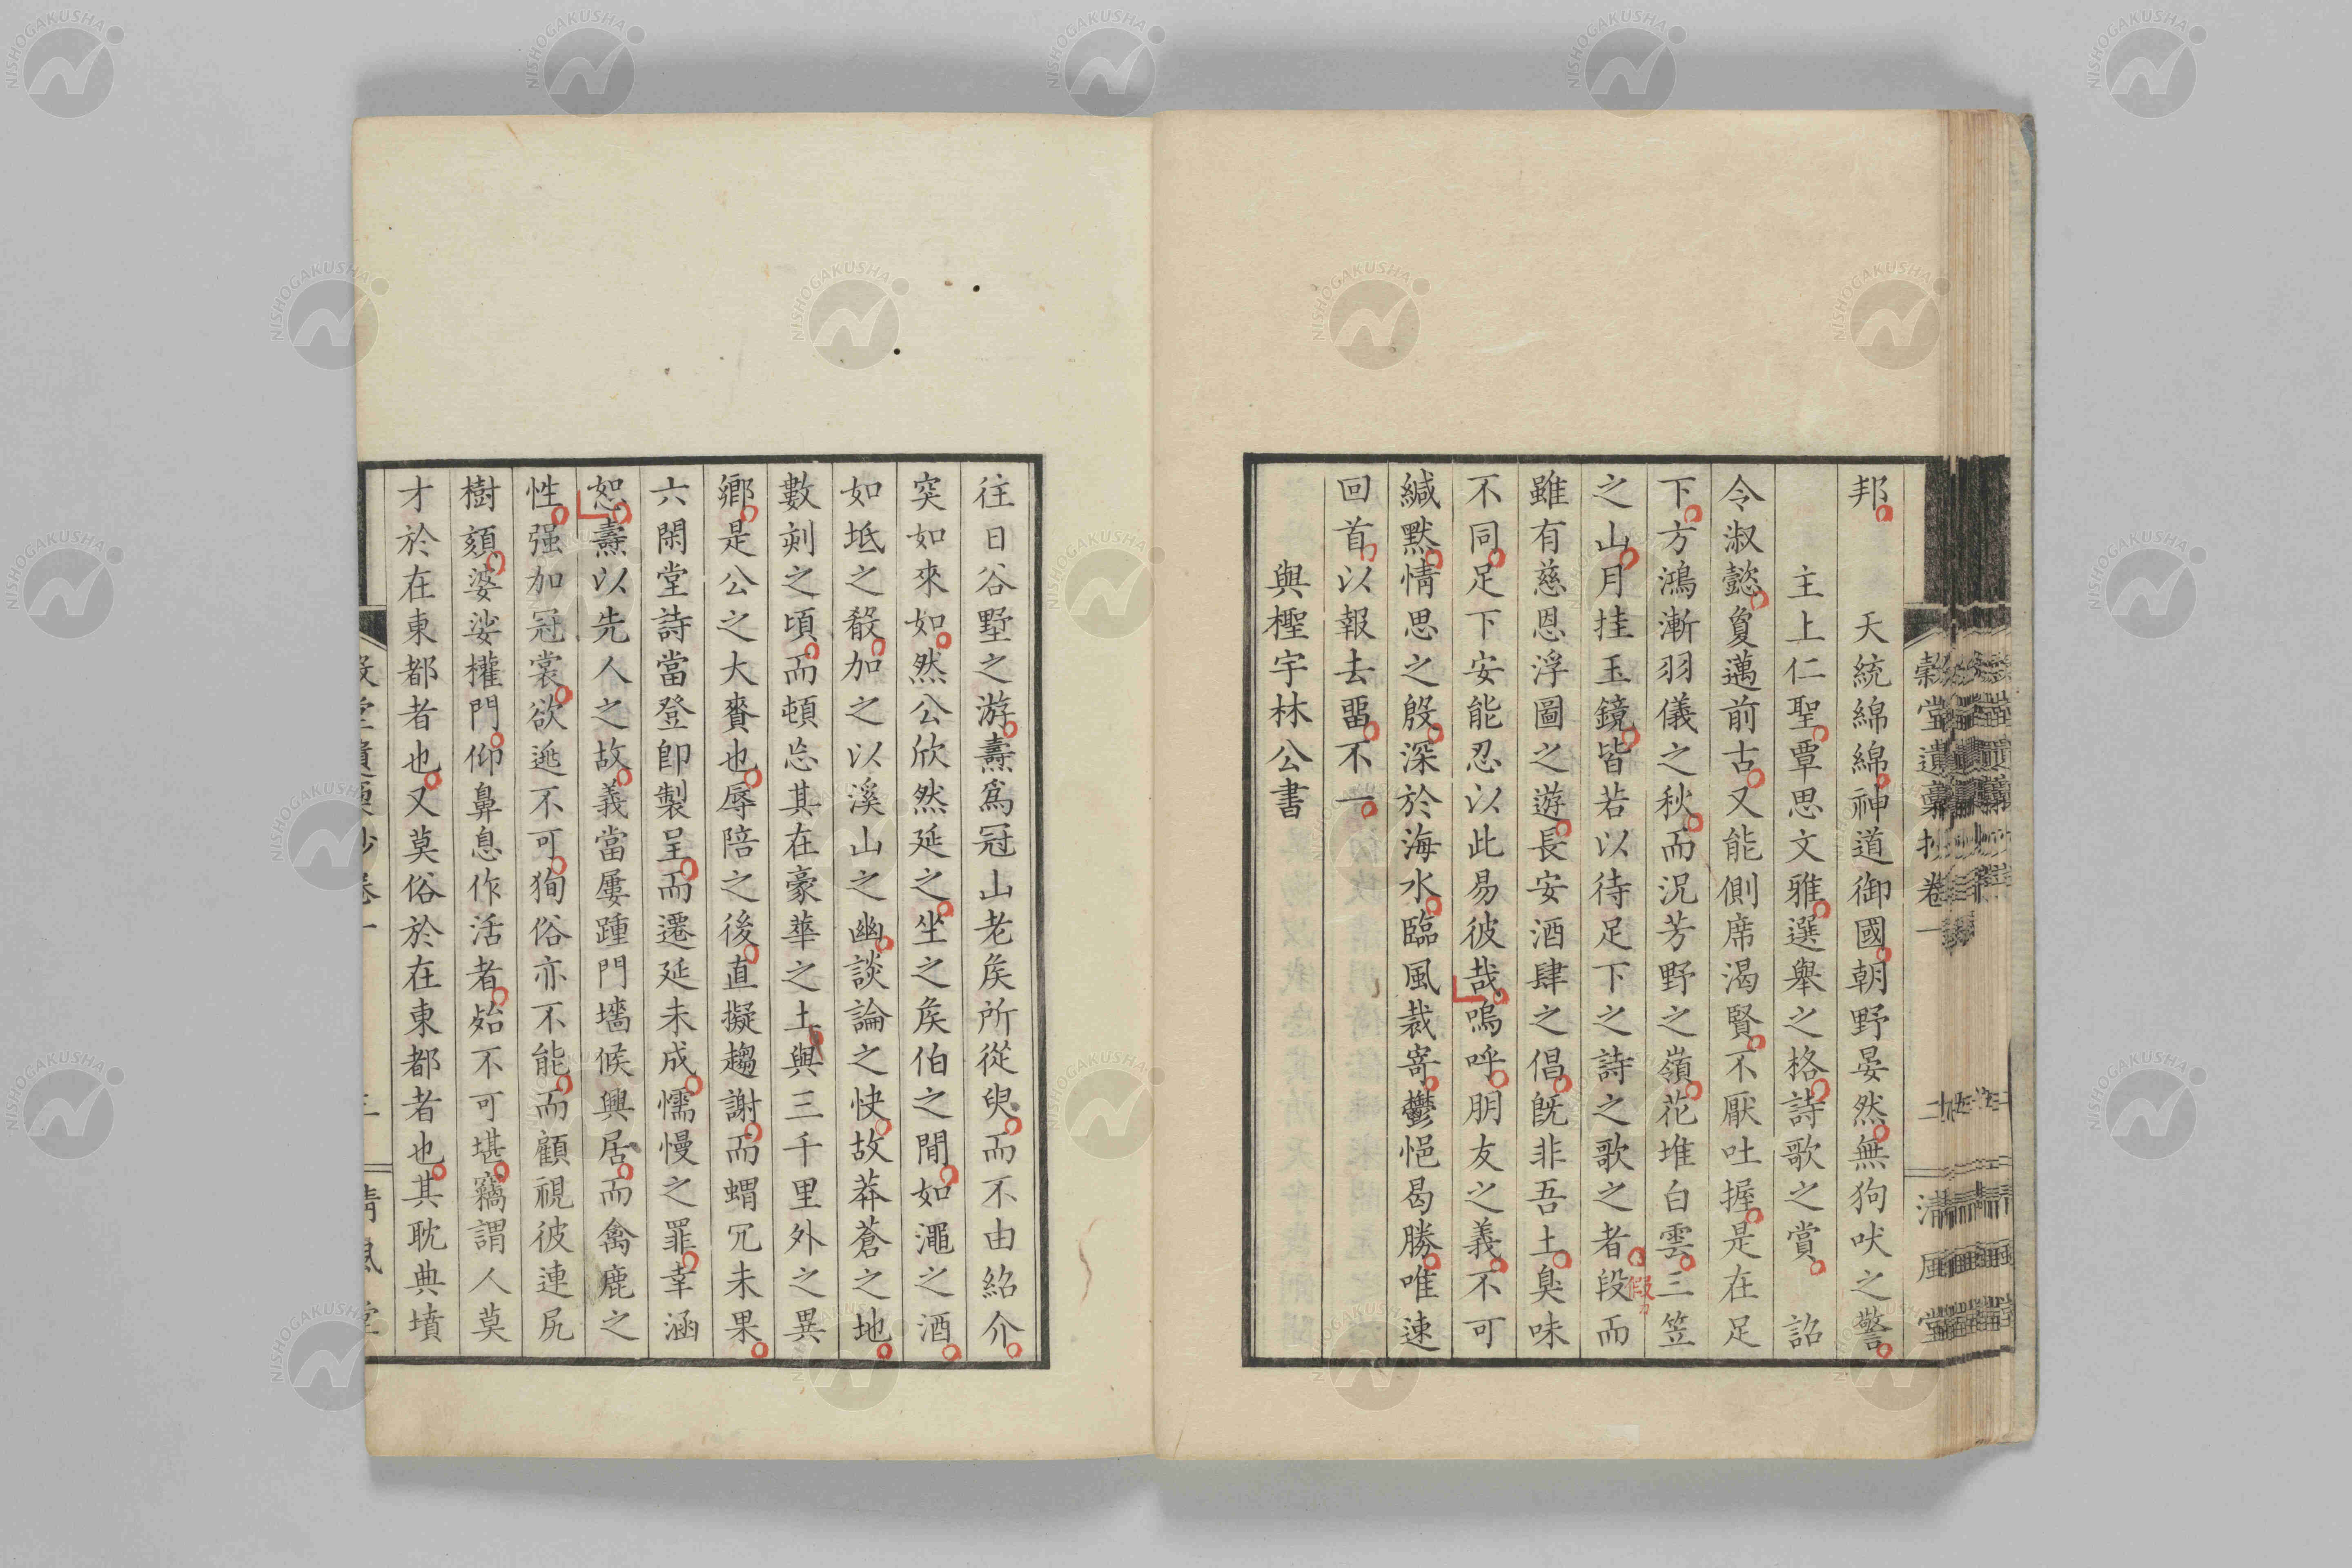 穀堂遺稾抄卷一
二
清風堂
邦
天統綿綿神道御國朝野晏然無狗吠之警
主上仁聖覃思文雅選舉之格詩歌之賞 詔
令淑懿敻邁前古又能側席渴賢不厭吐握是在足
下方鴻漸羽儀之秋而況芳野之嶺花堆白雲三笠
之山月挂玉鏡皆若以待足下之詩之歌之者段而
假カ
雖有慈恩浮圖之遊長安酒肆之倡旣非吾土臭味
不同足下安能忍以此易彼哉嗚呼朋友之義不可
緘默情思之殷深於海水臨風裁寄鬱悒曷勝唯速
回首以報去畱不一
與檉宇林公書
往日谷墅之游燾寫冠山老矦所從臾而不由紹介
突如來如然公欣然延之坐之矦伯之閒如澠之酒
如坻之殽加之以溪山之幽談論之快故莽蒼之地
數刻之頃而頓忘其在豪華之土與三千里外之異
鄉是公之大賚也辱陪之後直擬趨謝而蝟冗未果
六閑堂詩當登卽製呈而遷延未成懦慢之罪幸涵
恕燾以先人之故義當屢踵門墻候興居而禽鹿之
性强加冠裳欲逃不可狥俗亦不能而顧視彼連尻
樹頦婆娑權門仰鼻息作活者殆不可堪竊謂人莫
才於在東都者也又莫俗於在東都者也其耽典墳
NISHOGAKUSHA